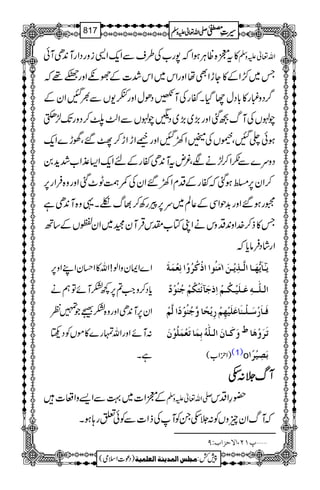 سیرتِ مصطفی صلی اللہ تعالیٰ علیہ وسلم 817
اللہ تعالیٰ علیہ وسلم کا یہ معجزہ ظاہر ہوا کہ پورب کی طرف سے ایک ایسی زور دار آندھی آئی
جس میں کڑاکے کا جاڑا بھی تھا اور اس میں اس شدت کے جھونکے اور جھکڑ تھے کہ
گرد و غبار کا بادل چھا گیا۔ کفار کی آنکھیں دھول اور کنکریوں سے بھر گئیں ان کے
چولہوں کی آگ بجھ گئی اور بڑی بڑی دیگیں چولہوں سے الٹ پلٹ کر دور تک لڑھکتی
ہوئی چلی گئیں، خیموں کی میخیں اکھڑ گئیں اور خیمے اڑ اڑ کر پھٹ گئے، گھوڑے ایک
دوسرے سے ٹکرا کر لڑنے لگے، غرض یہ آندھی کفار کے لئے ایک ایسا عذاب شدید بن
کر ان پر مسلط ہو گئی کہ کفار کے قدم اکھڑ گئے ان کی کمر ہمت ٹوٹ گئی اور وہ فرار پر
مجبور ہو گئے اور بدحواسی کے عالم میں سر پر پیر رکھ کر بھاگ نکلے۔ یہی وہ آندھی ہے
جس کا ذکر خداوند قدوس نے اپنی کتاب مقدس قرآن مجید میں ان لفظوں کے ساتھ
ارشاد فرمایا کہ
یٰۤاَیُّهَا الَّذِیْنَ اٰمَنُوا اذْكُرُوْا نِعْمَةَ اللّٰهِ عَلَیْكُمْ اِذْ جَآءَتْكُمْ جُنُوْدٌ فَاَرْسَلْنَا عَلَیْهِمْ رِیْحًا وَّ جُنُوْدًا لَّمْ تَرَوْهَا ؕ وَ كَانَ اللّٰهُ بِمَا تَعْمَلُوْنَ بَصِیْرًا (1) (احزاب)
اے ایمان والو! اللہ کا احسان اپنے اوپر یاد کرو جب تم پر کچھ لشکر آئے تو ہم نے ان پر آندھی اور وہ لشکر بھیجے جو تمہیں نظر نہ آئے اور اللہ تمہارے کاموں کو دیکھتا ہے۔
آگ جلا نہ سکی
حضور اقدس صلی اللہ تعالیٰ علیہ وسلم کے معجزات میں بہت سے ایسے واقعات ہیں
کہ آگ ان چیزوں کو نہ جلا سکی جن کو آپ کی ذات سے کوئی تعلق رہا ہو۔
......پ۲۱، الاحزاب: ۹
پیش کش: مجلس المدینة العلمیة (دعوتِ اسلامی)